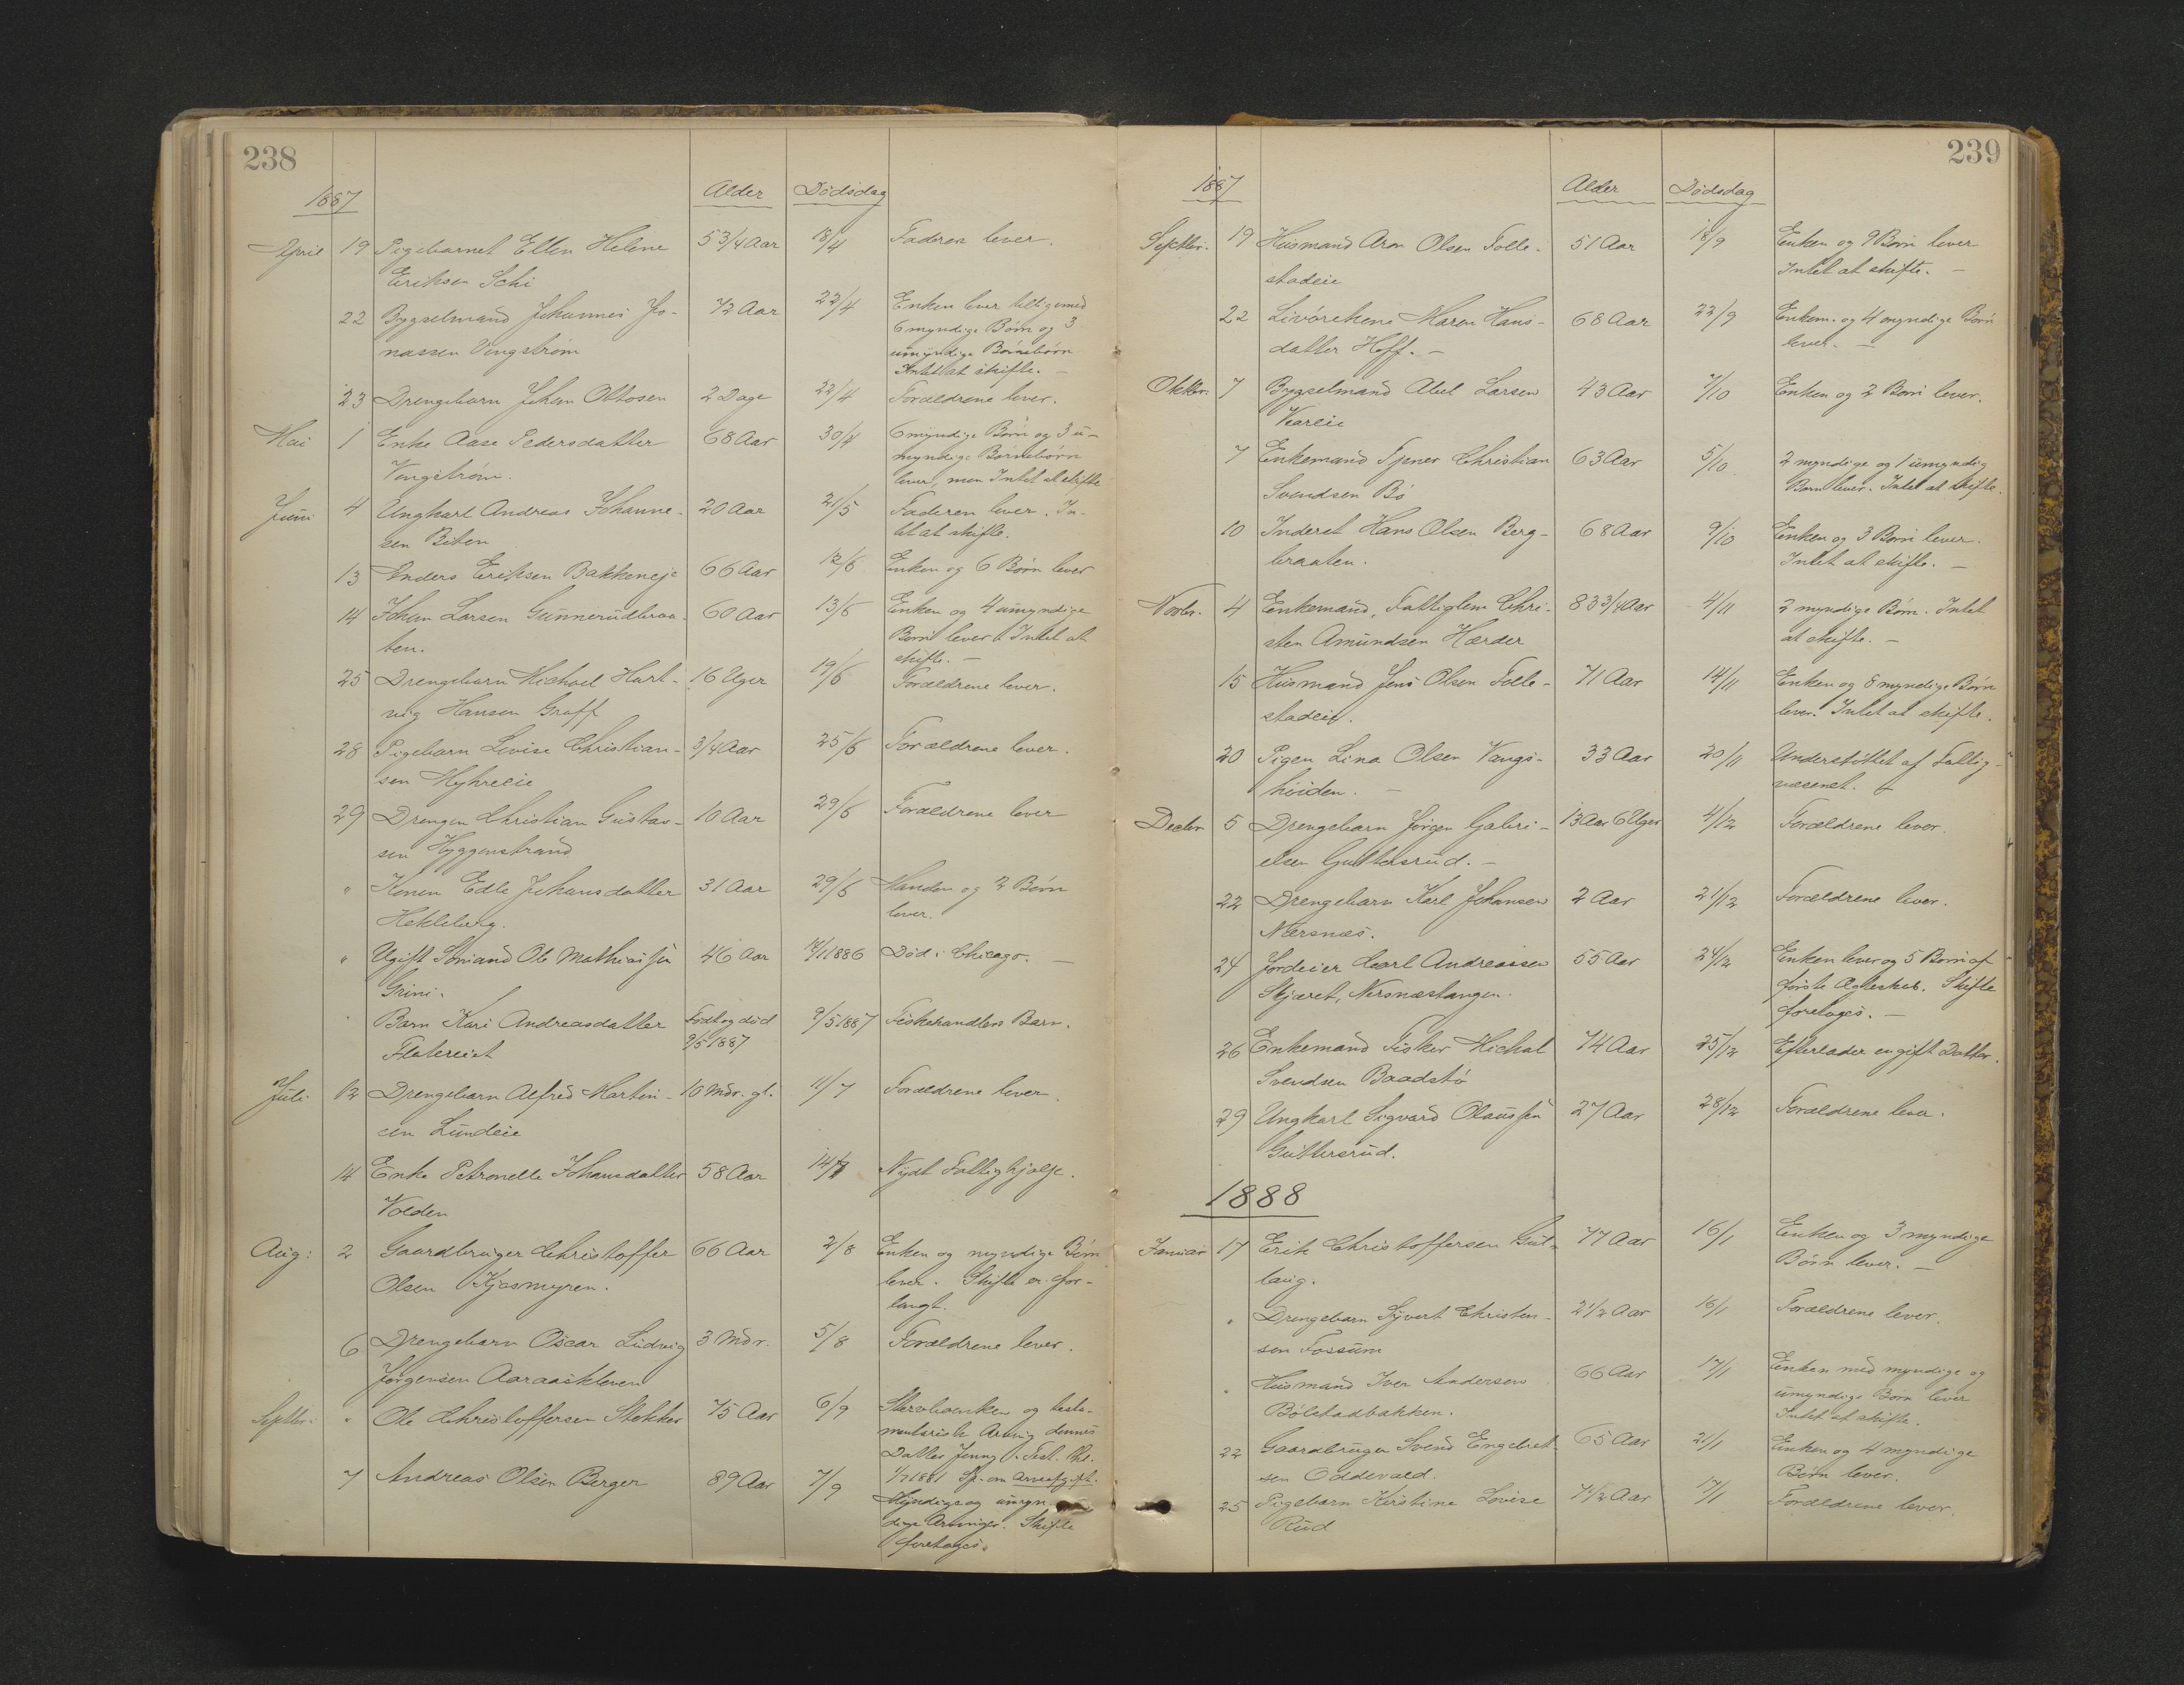 238
1887 Alder Dødsdag
April 19 Pigebarnet Ellen Helene 5 3/4 Aar 18/4 Faderen lever.
Eriksen Schi
22 Bygselmand Johannes Jo- 72 Aar 22/4 Enken lever tilligemed
nassen Vengstrøm 6 myndige Børn og 3
umyndige Børnebørn
Intet at skifte. -
23 Drengebarn Johan Ottosen 2 Dage 22/4 Forældrene lever.
Mai 1 Enke Aase Pedersdatter 68 Aar 30/4 6 myndige Børn og 3 u-
Vengstrøm. myndige Børnebørn
lever, men Intet at skifte
Juni 4 Ungkarl Andreas Johanne- 20 Aar 21/5 Faderen lever. In-
sen Biten tet at skifte.
13 Anders Eriksen Bakkeneje 66 Aar 12/6 Enken og 6 Børn lever
14 Johan Larsen Gunnerudbraa- 60 Aar 13/6 Enken og 4 umyndige
ten. Børn lever. Intet at
skifte. -
25 Drengebarn Michael Hart- 16 Uger 19/6 Forældrene lever.
vig Hansen Graff
28 Pigebarn Lovise Christian- 3/4 Aar 25/6 Forældrene lever.
sen Myhreeie
29 Drengen Christian Gustav- 10 Aar 29/6 Forældrene lever
sen Hyggenstrand
" Konen Edle Johansdatter 31 Aar 29/6 Manden og 2 Børn
Hekleberg. lever.
" Ugift Sømand Ole Mathiassen 46 Aar 1886 Død i Chicago. -
Grini.
Barn Kari Andreasdatter Født og død 9/5 1887 Fiskehandlers Barn.
9/5 1887
Juli 12 Drengebarn Alfred Martin- 10 Mdr. gl. 11/7 Forældrene lever.
sen Lundeie
14 Enke Petronelle Johansdatter 58 Aar 14/7 Nydt Fattighjælp.
Volden
Aug: 2 Gaardbruger Christoffer 66 Aar 2/8 Enken og myndige Børn
Olsen Kjøsmyren. lever. Skifte er for-
langt.
6 Drengebarn Oscar Ludvig 3 Mdr. 5/8 Forældrene lever.
Jørgensen Aaraaskleven
Septbr: " Ole Christoffersen Stokker 75 Aar 6/9 og testa-
mentarisk Arving dennes
Datter Jenny. Test.
1/7 1881 Sp. om Arveafgift.
7 Andreas Olsen Berger 89 Aar 7/9 Myndige og umyn-
dige Arvinger. Skifte
foretages.
239
1887 Alder Dødsdag
Septbr. 19 Husmand Aron Olsen Folle- 51 Aar 18/9 Enken og 9 Børn lever
stadeie Intet at skifte. -
22 Livørekone Maren Hans- 68 Aar 22/9 Enkem. og 4 myndige Børn
datter Hoff. - lever. -
Oktbr: 7 Bygselmand Abel Larsen 43 Aar 7/10 Enken og 2 Børn lever.
7 Enkemand Tjener Christian 63 Aar 5/10 2 myndige og 1 umyndig
Svendsen Bø Børn lever. Intet at skifte.
10 Inderst Hans Olsen Berg- 68 Aar 9/10 Enken og 3 Børn lever.
braaten. Intet at skifte. -
Novbr. 4 Enkemand, Fattiglem Chri- 83 3/4 Aar 4/11 2 myndige Børn. Intet
sten Amundsen Hærder at skifte. -
15 Husmand Jens Olsen Folle- 71 Aar 14/11 Enken og 8 myndige Børn
stadeie. lever. Intet at skifte.
20 Pigen Lina Olsen Vangs- 33 Aar 20/11 Understøttet af Fattig-
høiden. - væsenet.
Decbr 5 Drengebarn Jørgen Gabri- 13 Aar 6 Uger 4/12 Forældrene lever.
elsen Guttersrud. -
22 Drengebarn Karl Johansen 2 Aar 21/12 Forældrene lever.
Nærsnæs.
24 Jordeier Carl Andreassen 55 Aar 24/12 Enken lever og 5 Børn af
Skjæret, Nersnæstangen. første Ægteskab. Skifte
foretages. -
26 Enkemand Fisker Michal 74 Aar 25/12 Efterlader en gift Datter.
Svendsen Baadstø
29 Ungkarl Sigvard Olaussen 27 Aar 28/12 Forældrene lever.
Guttersrud.
1888
Januar 17 Erik Christoffersen Gut- 77 Aar 16/1 Enken og 3 myndige
laug. Børn lever. -
" Drengebarn Syvert Christen- 2 1/2 Aar 16/1 Forældrene lever.
sen Fossum
" Husmand Iver Andersen 66 Aar 17/1 Enken med myndige og
Bølstadbakken. umyndige Børn lever
Intet at skifte.
22 Gaardbruger Svend Engebret- 65 Aar 21/1 Enken og 4 myndige
sen Oddevald. Børn lever.
25 Pigebarn Kristine Lovise 7 1/2 Aar 17/1 Forældrene lever.
Rud